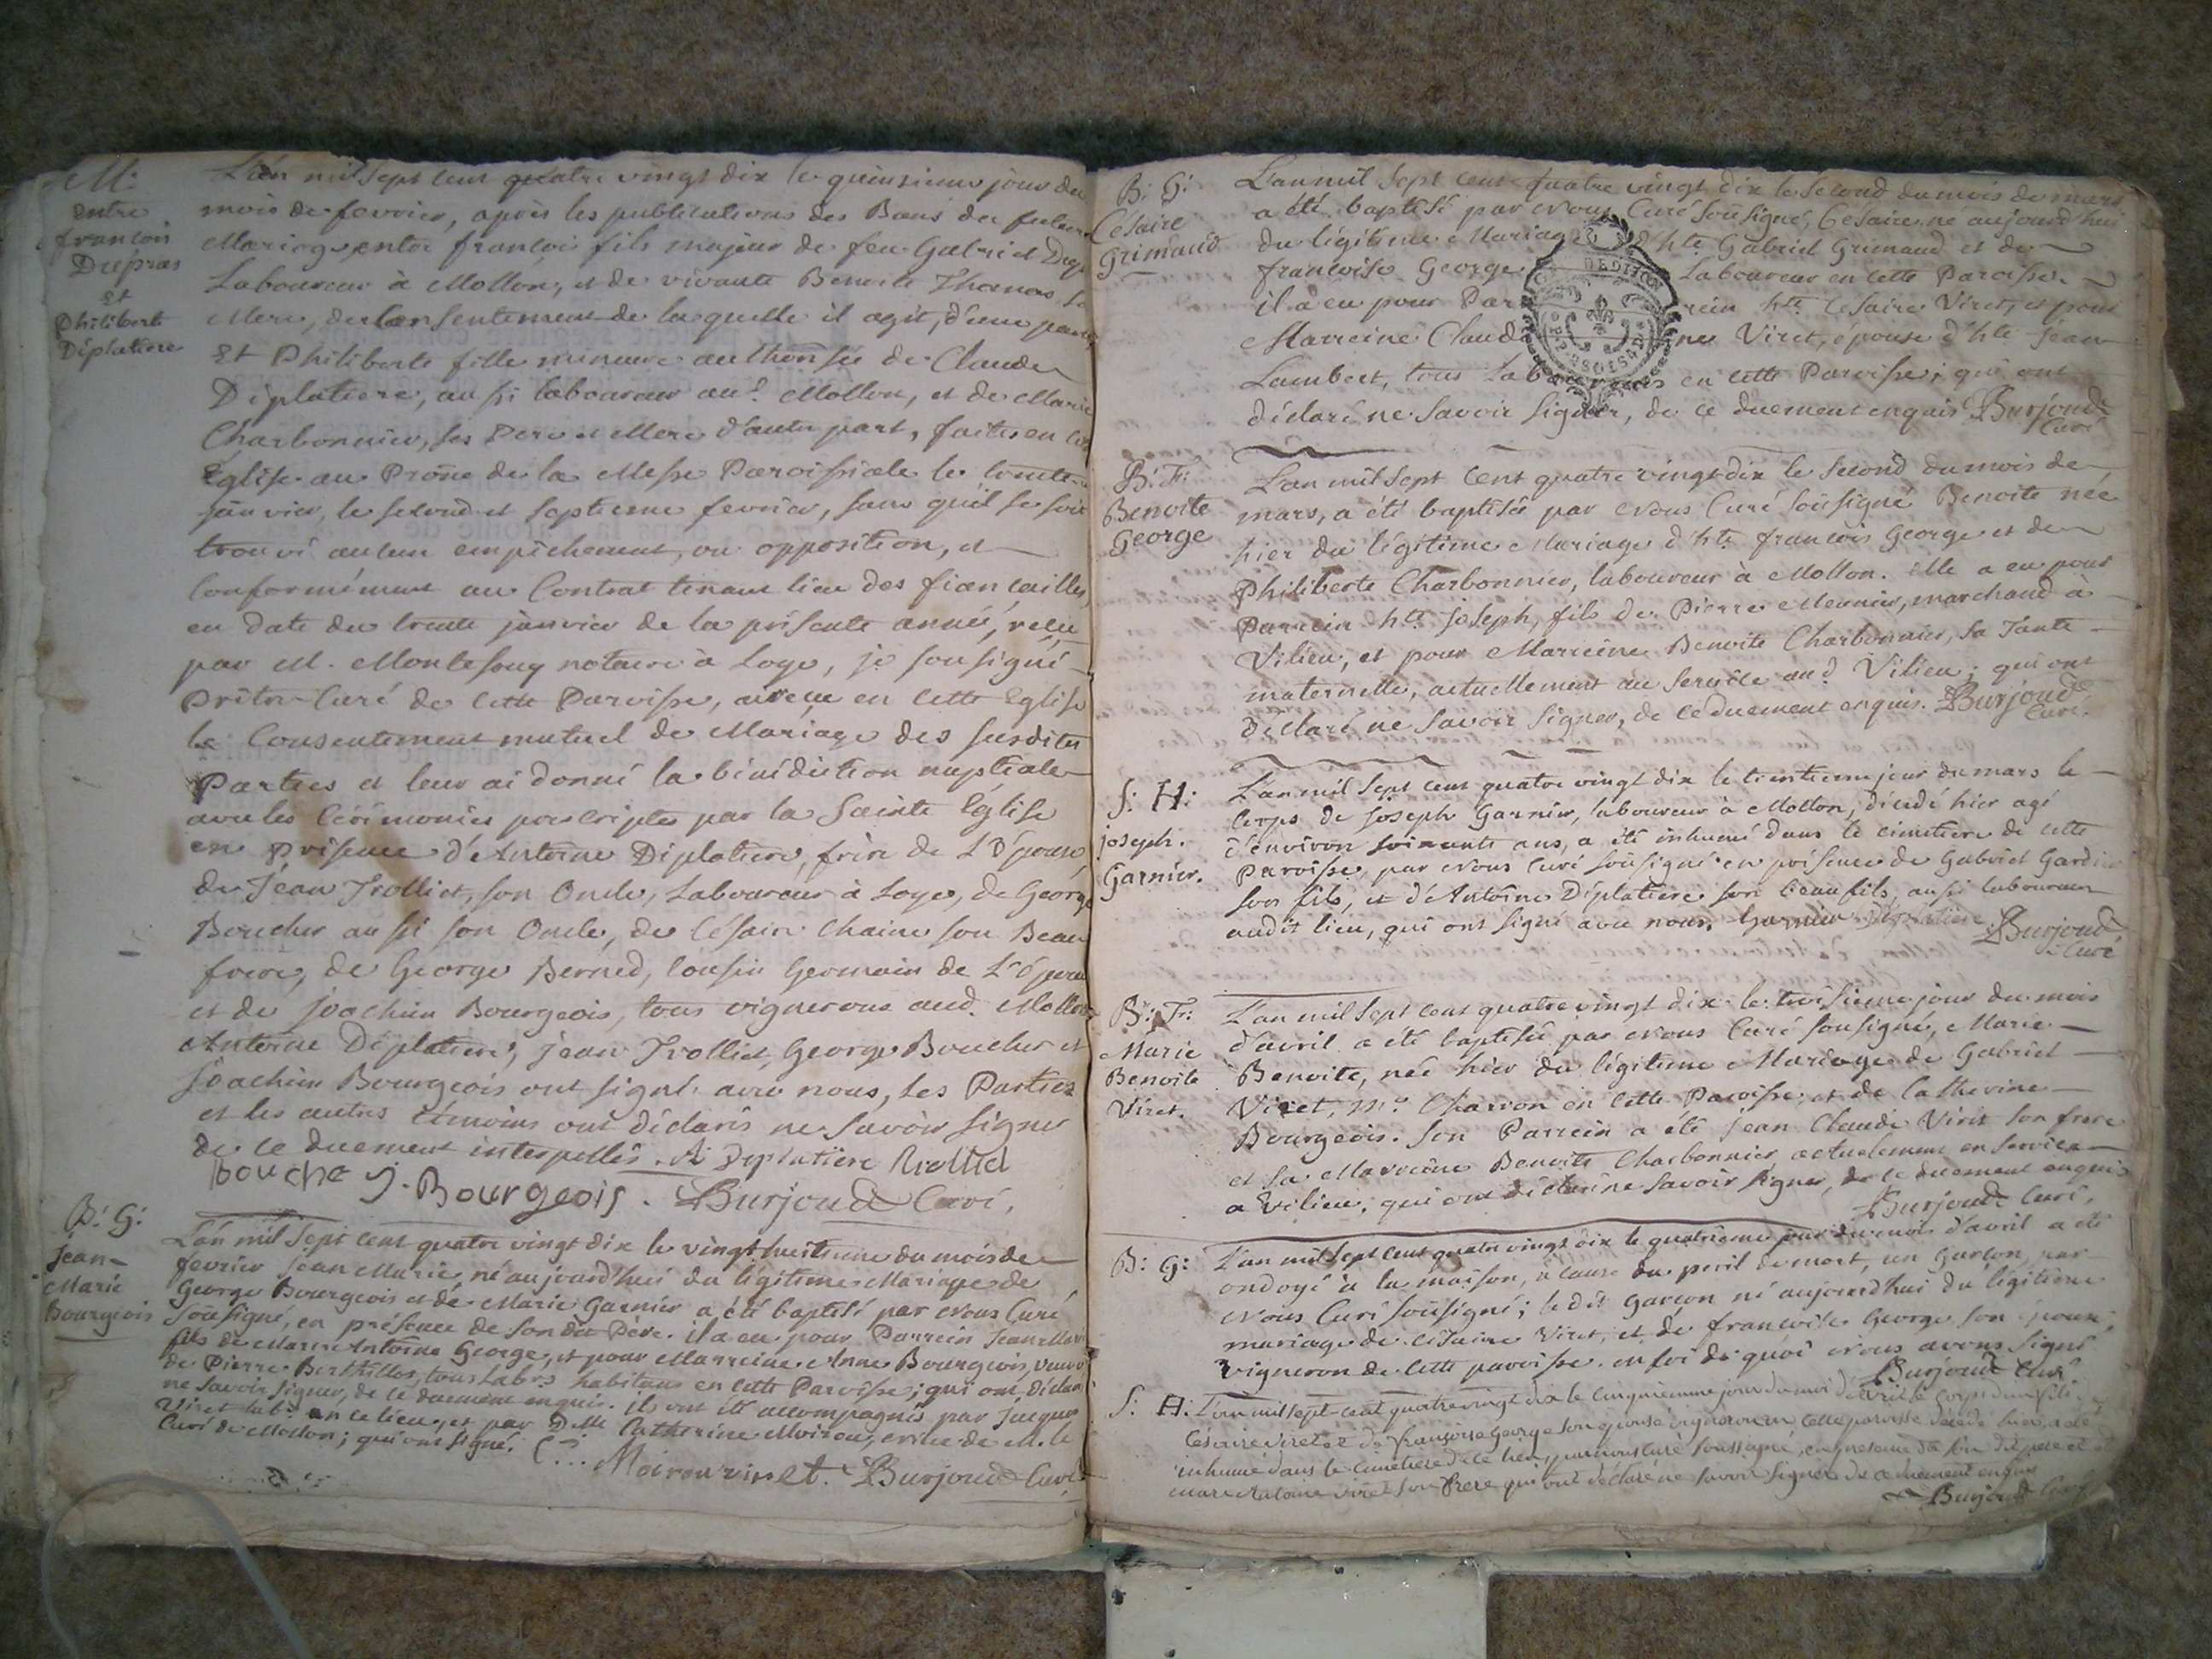 M:
entre
francois
Drépras
et
Philiberte
Déplatiere
L'an mil sept cent quatre vingt dix le quinsieme jour du
mois de fevrier, après les publications des Bans du futur
Mariage entre francois fils majeur de feu Gabriel
Laboureur à Mollon, et de vivante Benoite Thomas sa
Mere, du consentement de laquelle il agit, d'une part,
Et Philiberte fille mineure authorisée de Claude
Déplatiere, aussi laboureur aud. Mollon, et de Marie
Charbonnier, ses Pere et Mere d'autre part, faites en
Eglise au Prône de la Messe Paroissiale le trente
janvier, le second et septieme fevrier, sans qu'il se soit
trouvé aucun empêchement, ou opposition, et
conformément au Contrat tenant lieu des fiancailles,
en date du trente janvier de la présente année, reçu
par M. Montesouy notaire à Loye, je sousigné
Prêtre Curé de cette Paroisse, ai reçu en cette Eglise
le Consentement mutuel de Mariage des susdites
Parties et leur ai donné la bénédiction nuptiale
avec les Cérémonies prescriptes par la Sainte Eglise
en présence d'Antoine Déplatiere, frère de L'Epouse
de Jean Trolliet, son Oncle, Laboureur à Loye, de George
Boucher aussi son Oncle, de Césaire Chaine son Beau
frere, de George Berned, cousin Germain de L'Epoux
et de Joachim Bourgeois, tous vignerons aud. Mollon
Antoine Déplatiere, Jean Trolliet, George Boucher et
Joachim Bourgeois ont signé avec nous, les Parties
et les autres témoins ont déclaré ne savoir signer
de ce duement interpellés. A Deplatière Trolliet
bouche J. Bourgeois. Burjoud Curé,
B: G:
Jean-
Marie
Bourgeois
L'an mil sept cent quatre vingt dix le vingt huitieme du mois de
fevrier Jean Marie, né aujourd'hui du légitime Mariage de
George Bourgeois et de Marie Garnier a été baptisé par Nous Curé
sousigné, en présence de son dit Père. il a eu pour Parrein Jean Marie
fils de Marc Antoine George, et pour Marreine Anne Bourgeois, veuve
de Pierre Berthillot, tous Labrs habitans en cette Paroisse; qui ont déclaré
ne savoir signer, de ce duement enquis. Ils ont été accompagnés par Jacques
Viret labr en ce lieu, et par Dlle Catherine Moiroux, niece de M. le
Curé de Mollon; qui ont signé.
Moiroux viret. Burjoud Curé
B: G:
Césaire
Grimaud
L'an mil sept cent quatre vingt dix le second du mois de mars
a été baptisé par Nous Curé sousigné, Césaire né aujourd'hui
du légitime Mariage d'hte Gabriel Grimaud et de
francoise George Laboureur en cette Paroisse.
il a eu pour Parrein hte Césaire Viret, et pour
Marreine Claudine Viret, épouse d'hte Jean
Lambert, tous Laboureurs en cette Paroisse; qui ont
déclaré ne savoir signer, de ce duement enquis Burjoud
Curé
B: F:
Benoite
George
L'an mil sept cent quatre vingt dix le second du mois de
mars, a été baptisée par Nous Curé sousigné Benoite née
hier du légitime Mariage d'hte francois George et de
Philiberte Charbonnier, laboureur à Mollon. Elle a eu pour
Parrein hte Joseph, fils de Pierre Meunier, marchand à
Vilieu, et pour Marreine Benoite Charbonnier, sa Tante
maternelle, actuellement au service aud. Vilieu; qui ont
déclaré ne savoir signer, de ce duement enquis. Burjoud
Curé.
S: H:
joseph.
Garnier.
L'an mil sept cent quatre vingt dix le trentieme jour du mars le
Corps de joseph Garnier, laboureur à Mollon, décédé hier agé
d'environ soixante ans, a été inhumé dans le cimetiere de cette
Paroisse par Nous Curé sousigné en présence de Gabriel Garnier
son fils, et d'Antoine Déplatiere son beau fils, aussi laboureurs
audit lieu, qui ont signé avec nous. Garnier Déplatière Burjoud
Curé
B: F:
Marie
Benoite
Viret.
L'an mil sept cent quatre vingt dix le troisieme jour du mois
d'avril a été baptisée par Nous Curé sousigné, Marie
Benoite, née hier du légitime Mariage de Gabriel
Viret, Me Charron en cette Paroisse; et de Catherine
Bourgeois. Son Parrein a été Jean Claude Viret son frere
et sa Marreine Benoite Charbonnier actuelement en service
a Vilieu; qui ont déclaré ne savoir signer, de ce duement enquis
Burjoud Curé,
B: G:
L'an mil sept cent quatre vingt dix le quatrieme jour du mois d'avril a été
ondoyé à la maison, à cause du peril de mort, un garcon, par
Nous Curé sousigné; le dit Garcon né aujourd'hui du légitime
mariage de Césaire Viret, et de francoise George son épouse,
vigneron de cette paroisse. en foi de quoi Nous avons signé
Burjoud Curé.
S: H:
L'an mil sept-cent quatre vingt dix le cinquiemme jour du moi d'avril le corps d'un fils de
Césaire viret et de françoise george son epouse vigneron en cette paroisse décédé hier, a eté
inhumé dans le cimetiere de ce lieu, par nous curé soussigné, en presence de son dit pere et
marc Antoine viret son frere qui ont déclaré ne savoir signer de ce duement enquis
Burjoud Curé